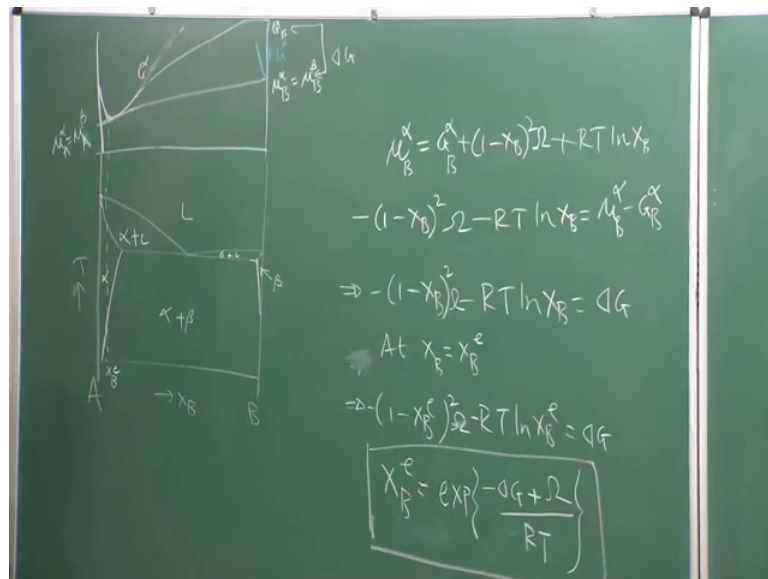 G_B^α
ΔG
G^α
G^β
μ_B^α = μ_B^β
μ_A^α = μ_A^β
L
α+L
α
β
α+β
T
X_B^e
A
→ X_B
B
μ_B^α = G_B^α + (1-X_B)^2 Ω + RT ln X_B
-(1-X_B)^2 Ω - RT ln X_B = μ_B^α - G_B^α
⇒ -(1-X_B)^2 Ω - RT ln X_B = ΔG
At X_B = X_B^e
⇒ -(1-X_B^e)^2 Ω - RT ln X_B^e = ΔG
X_B^e = exp{-ΔG + Ω / RT}